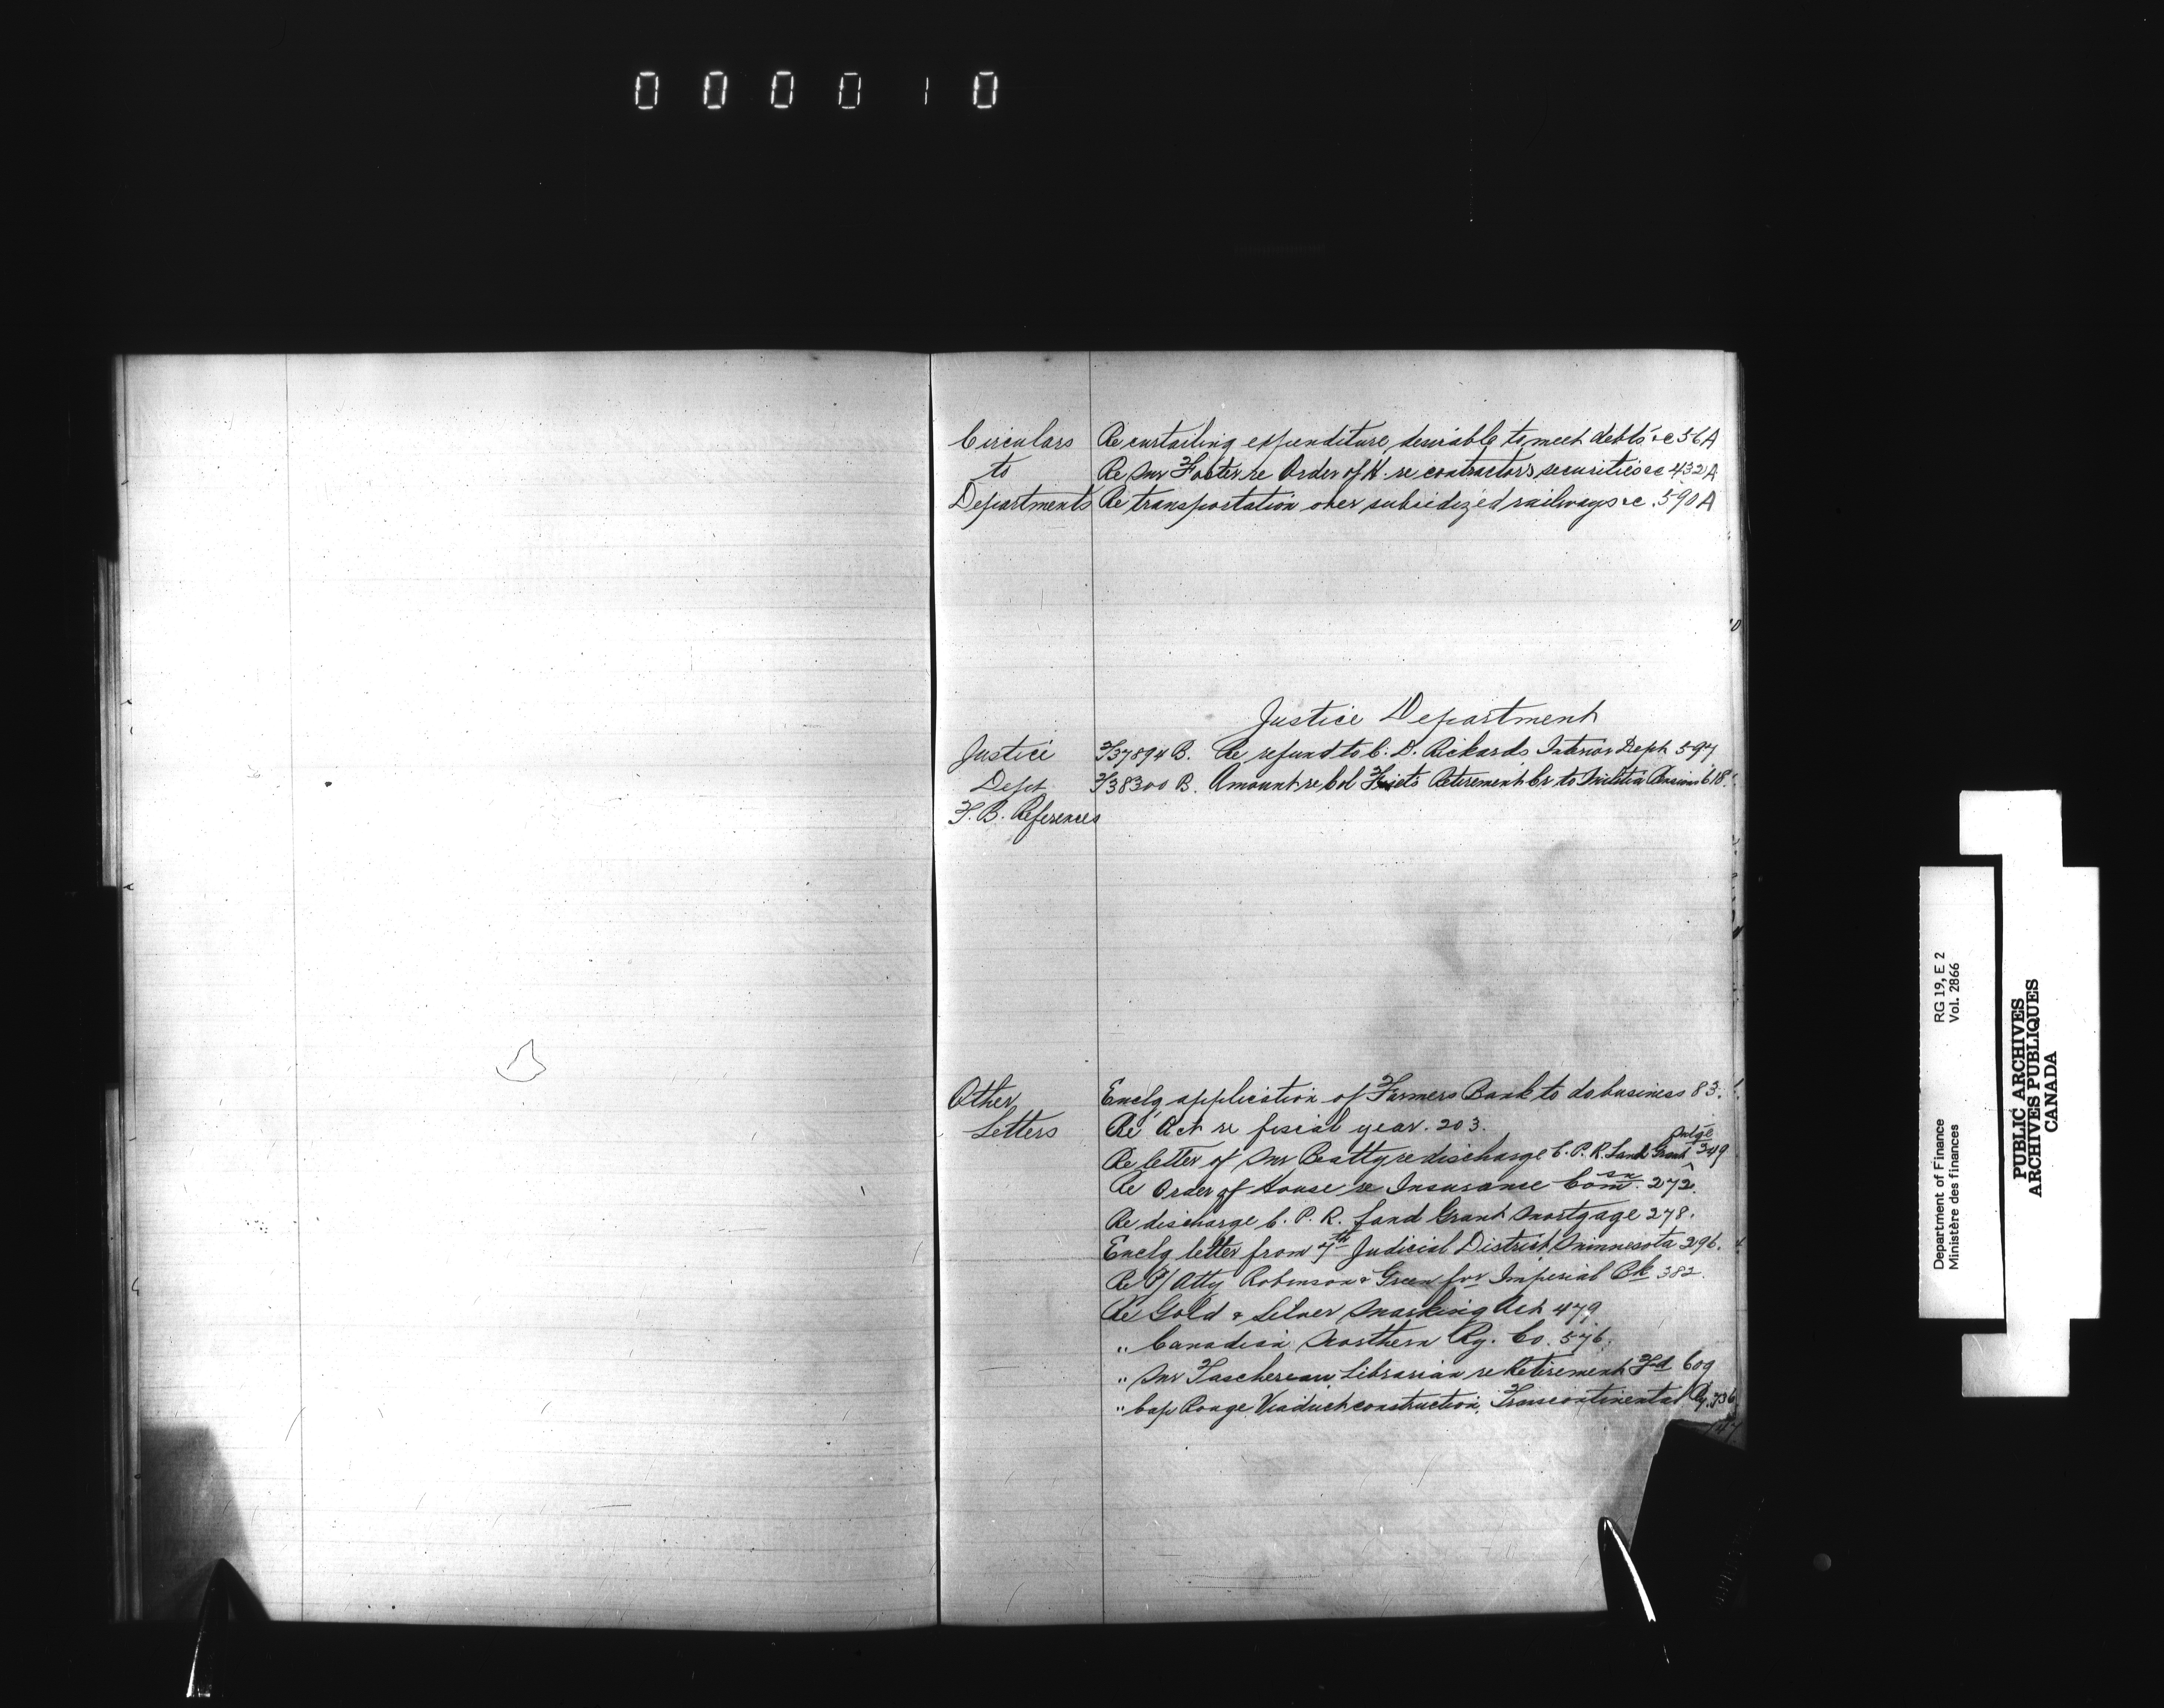 000010
Circulars Re curtailing expenditure, desirable to meet debts &c 56A
to Re Mr Foster re Order of H. re contractors securities &c 432A
Departments Re transportation over subsidized railways &c. 590A
Justice Department
Justice 37894 B. Re refund to C. D. Rickards Interior Dept 597
Dept 38300 B. Amount re Col retirement Cr to Militia Pensions 618.
F. B. References
Other Enclg application of Farmers Bank to do business 83.
Letters Re Act re fiscal year. 203.
Re letter of Mr Beatty re discharge C. P. R. Land Grant Mtge 249
Re Order of House re Insurance Comsn. 272.
Re discharge C. P. R. Land Grant Mortgage 278.
Enclg letter from 4th Judicial District Minnesota 296.
Re P/Atty Robinson & Green for Imperial Bk 382.
Re Gold & Silver Marking Act 479
" Canadian Northern Ry. Co. 576.
" Mr Taschereau Librarian re Retirement Fd 609
" Cap Rouge Viaduct construction, Transcontinental Ry. 736
747
Department of Finance RG 19, E 2
Ministère des finances Vol. 2866
PUBLIC ARCHIVES
ARCHIVES PUBLIQUES
CANADA